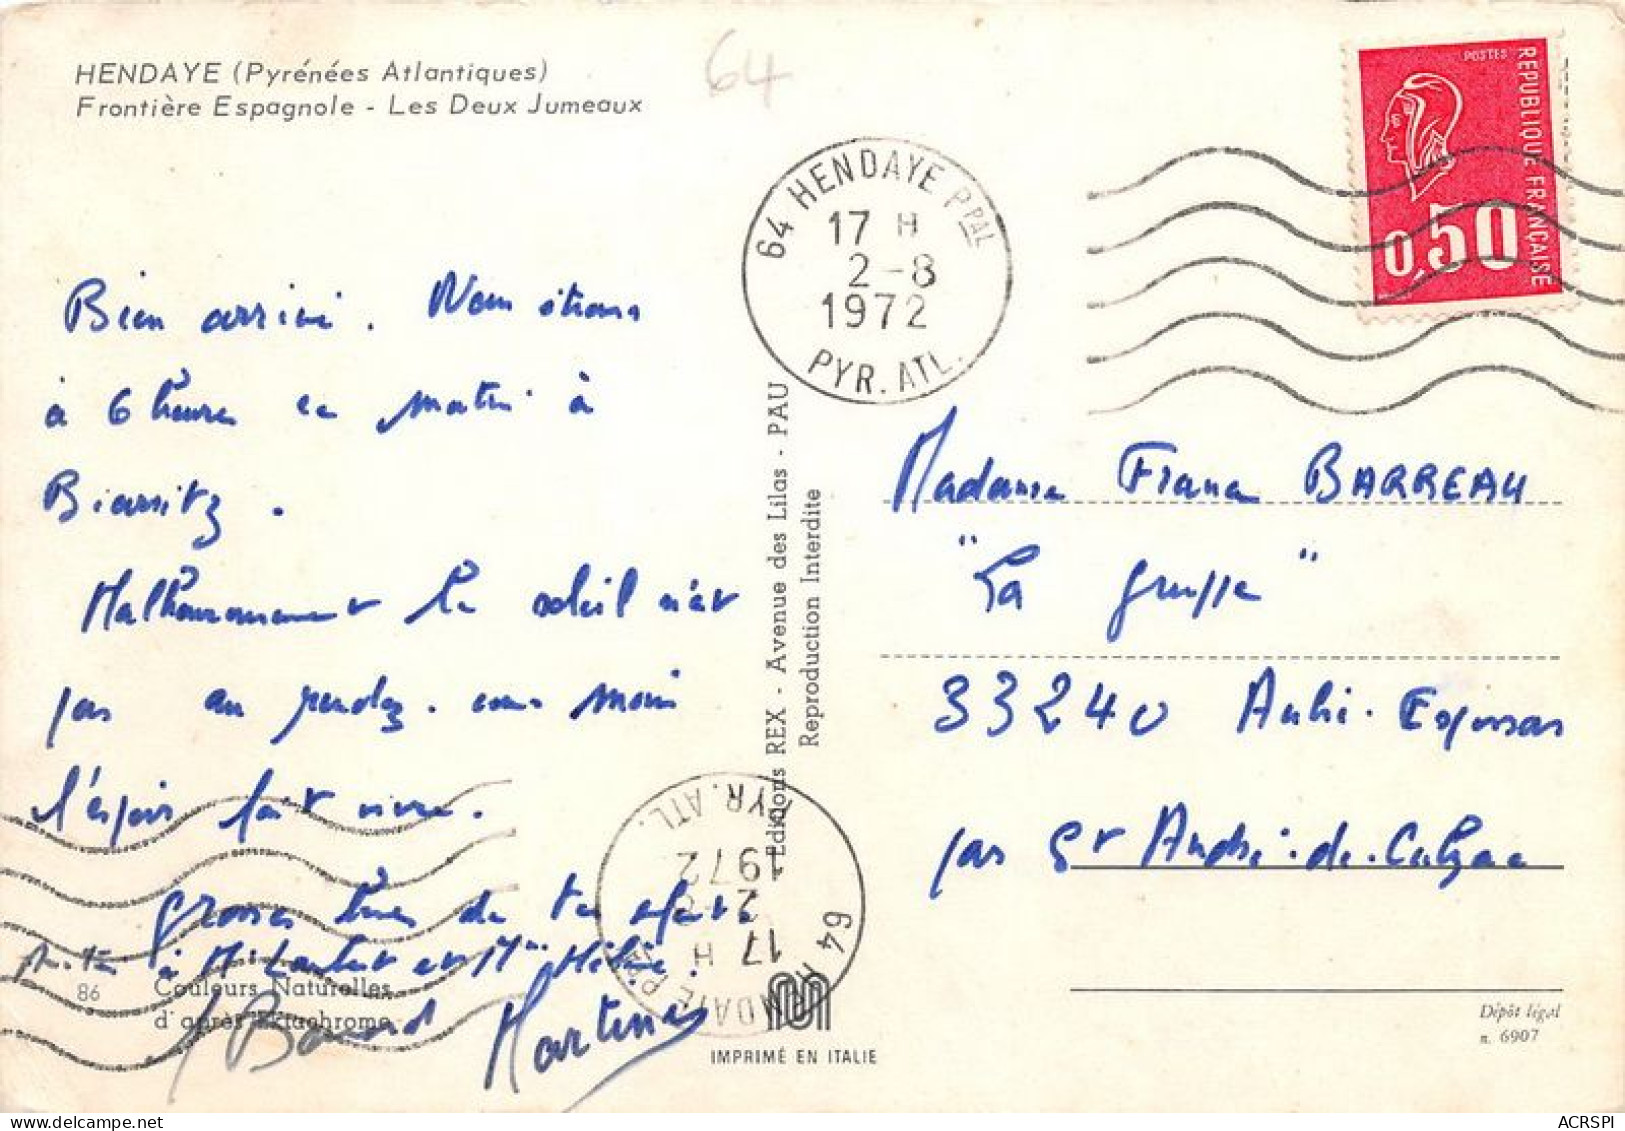 HENDAYE (Pyrénées Atlantiques)
Frontière Espagnole - Les Deux Jumeaux
64
Bien arrivé. Nous étions
à 6 heures ce matin à
Biarritz.
Malheureusement le soleil n'est
pas au rendez-vous mais
l'espoir fait vivre.
Grosses bises de
à Mr et Mme Hélène.
Bernard Martine
86
Couleurs Naturelles
d'après Ektachrome
Editions REX - Avenue des Lilas - PAU
Reproduction Interdite
IMPRIMÉ EN ITALIE
64 HENDAYE PPAL
17 H
2-8
1972
PYR. ATL.
POSTES
REPUBLIQUE FRANÇAISE
0,50
Madame BARREAU
"La
33240 Aubie-Espessas
par St André-de-Cubzac
Dépôt légal
n. 6907
64 HENDAYE PPAL
17 H
2-8
1972
PYR. ATL.
ACRSPI